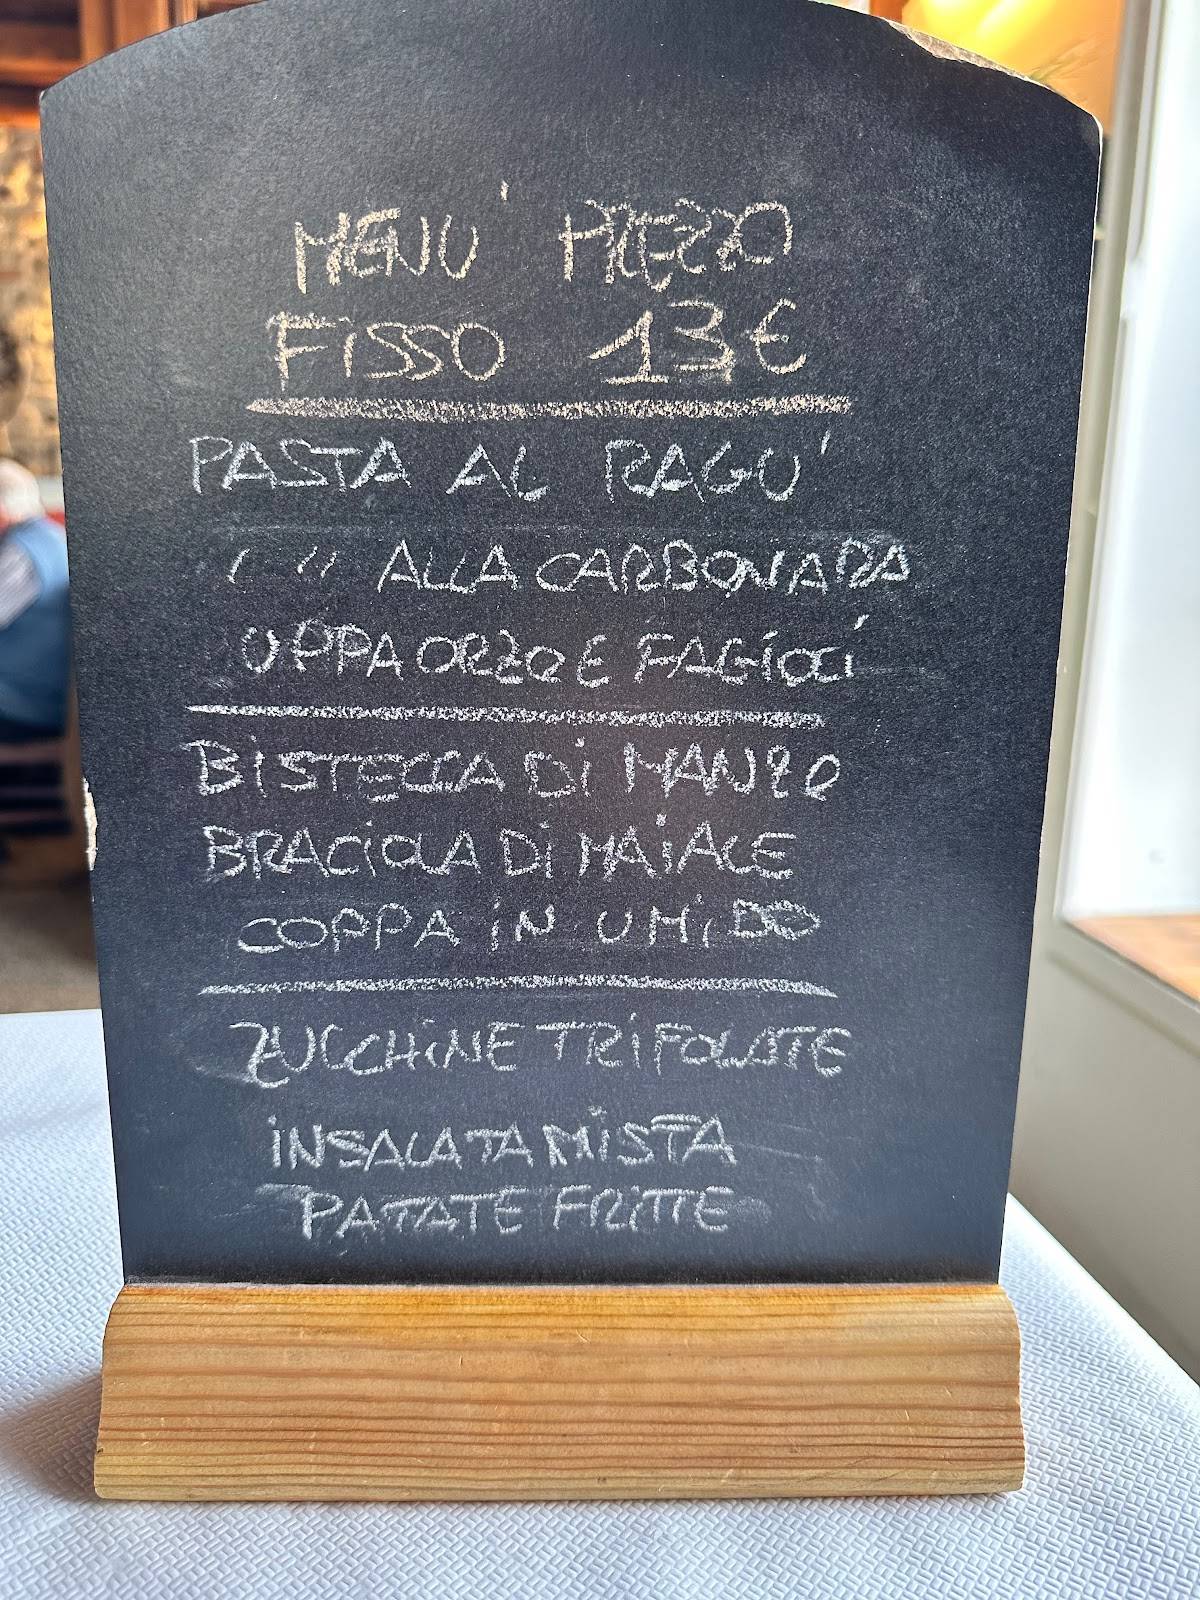 MENU' PREZZO
FISSO 13€
PASTA AL RAGU'
" " ALLA CARBONARA
ZUPPA ORZO E FAGIOLI
BISTECCA DI MANZO
BRACIOLA DI MAIALE
COPPA IN UMIDO
ZUCCHINE TRIFOLATE
INSALATA MISTA
PATATE FRITTE